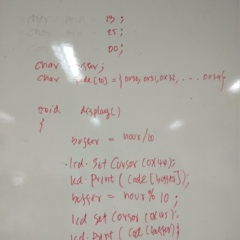 char = 13;
char = 25;
= 00;
char buffer;
char code[10] = {0x30, 0x31, 0x32, .... 0x39};
void display()
{
buffer = hour/10
lcd. Set Cursor (0x40);
lcd. print ( code [buffer]);
buffer = hour % 10 ;
lcd set cursor (0x41);
lcd. print ( code [buffer]);